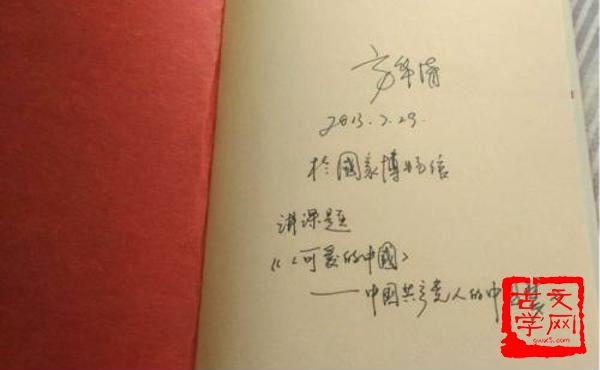 方华清
2013.7.29.
於國家博物馆
讲课题
《〈可爱的中國〉
——中國共产党人的中
古文
学网